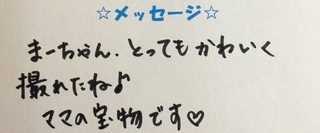 ☆メッセージ☆
まーちゃん、とってもかわいく
撮れたね♪
ママの宝物です♡